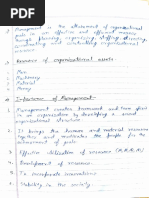 1) Management is the attainment of organizational
goals in an effective and efficient manner
through planning, organizing, staffing, directing,
coordinating and controlling organizational
resources.
Resources of organizational assets
1. Men
2. Machinery
3. Material
4. Money
Importance of Management-
Management creates teamwork and team spirit
in an organization by developing a sound
organization structure.
1. It brings the human and material resources
together and motivates the people for the
achievement of goals
2. Effective utilization of resources (M,M,M,M)
3. Development of resources
4. To incorporate innovations
5. Stability in the society